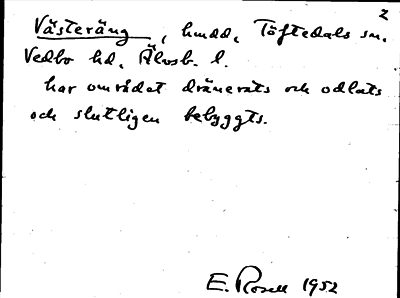 2
Västeräng, hmdd, Töftedals sn.
Vedbo hd. Älvsb. l.
har området dränerats och odlats
och slutligen bebyggts.
E. Rosell 1952